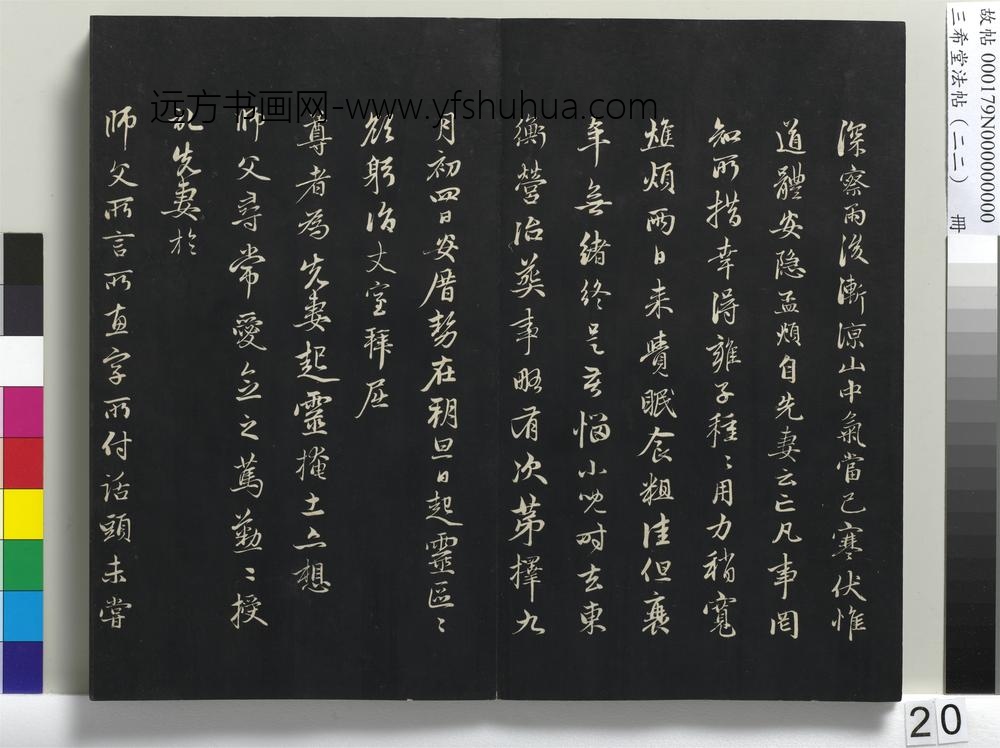 深察雨後漸涼山中氣當已寒伏惟
道體安隱孟頫自先妻云亡凡事罔
知所措幸得雍子種〻用力稍寬
燋煩兩日來覺眠食粗佳但衰
年無緒終是苦惱小兒時去東
衡營治葬事略有次第擇九
月初四日安厝勢在朔旦日起靈區〻
欲躬詣丈室拜屈
尊者為先妻起靈掩土亦想
師父尋常愛念之篤勤〻授
記先妻於
師父所言所直字所付話頭未嘗
远方书画网-www.yfshuhua.com
故帖 000179N000000000
三希堂法帖（二二） 冊
20